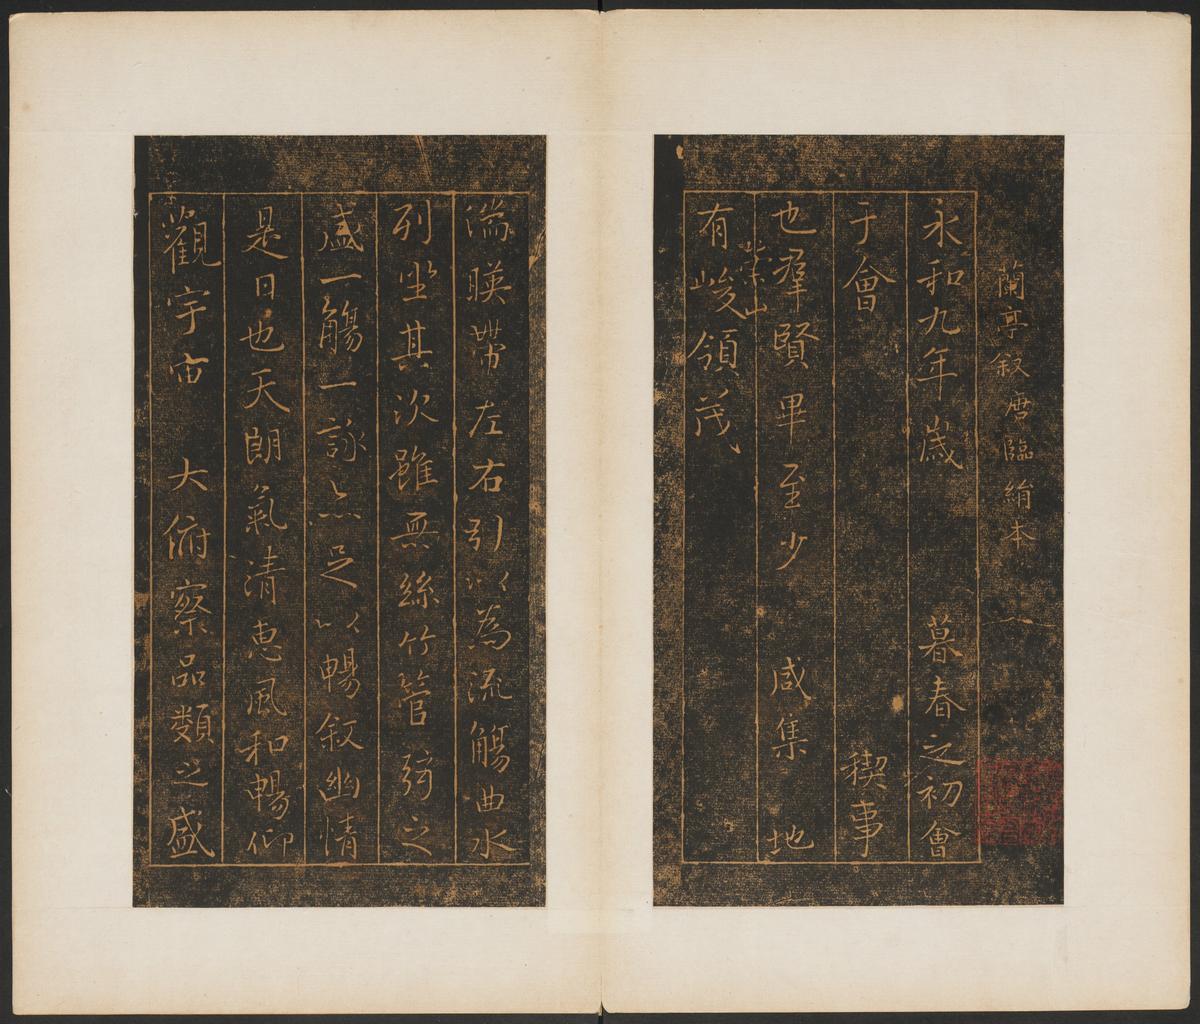 蘭亭叙唐臨絹本
永和九年歲 暮春之初會
于會 稧事
也羣賢畢至少 咸集 地
崇山
有峻領茂
湍暎帶左右引以為流觴曲水
列坐其次雖無絲竹管弦之
盛一觴一詠亦足以暢叙幽情
是日也天朗氣清惠風和暢仰
觀宇宙 大俯察品類之盛